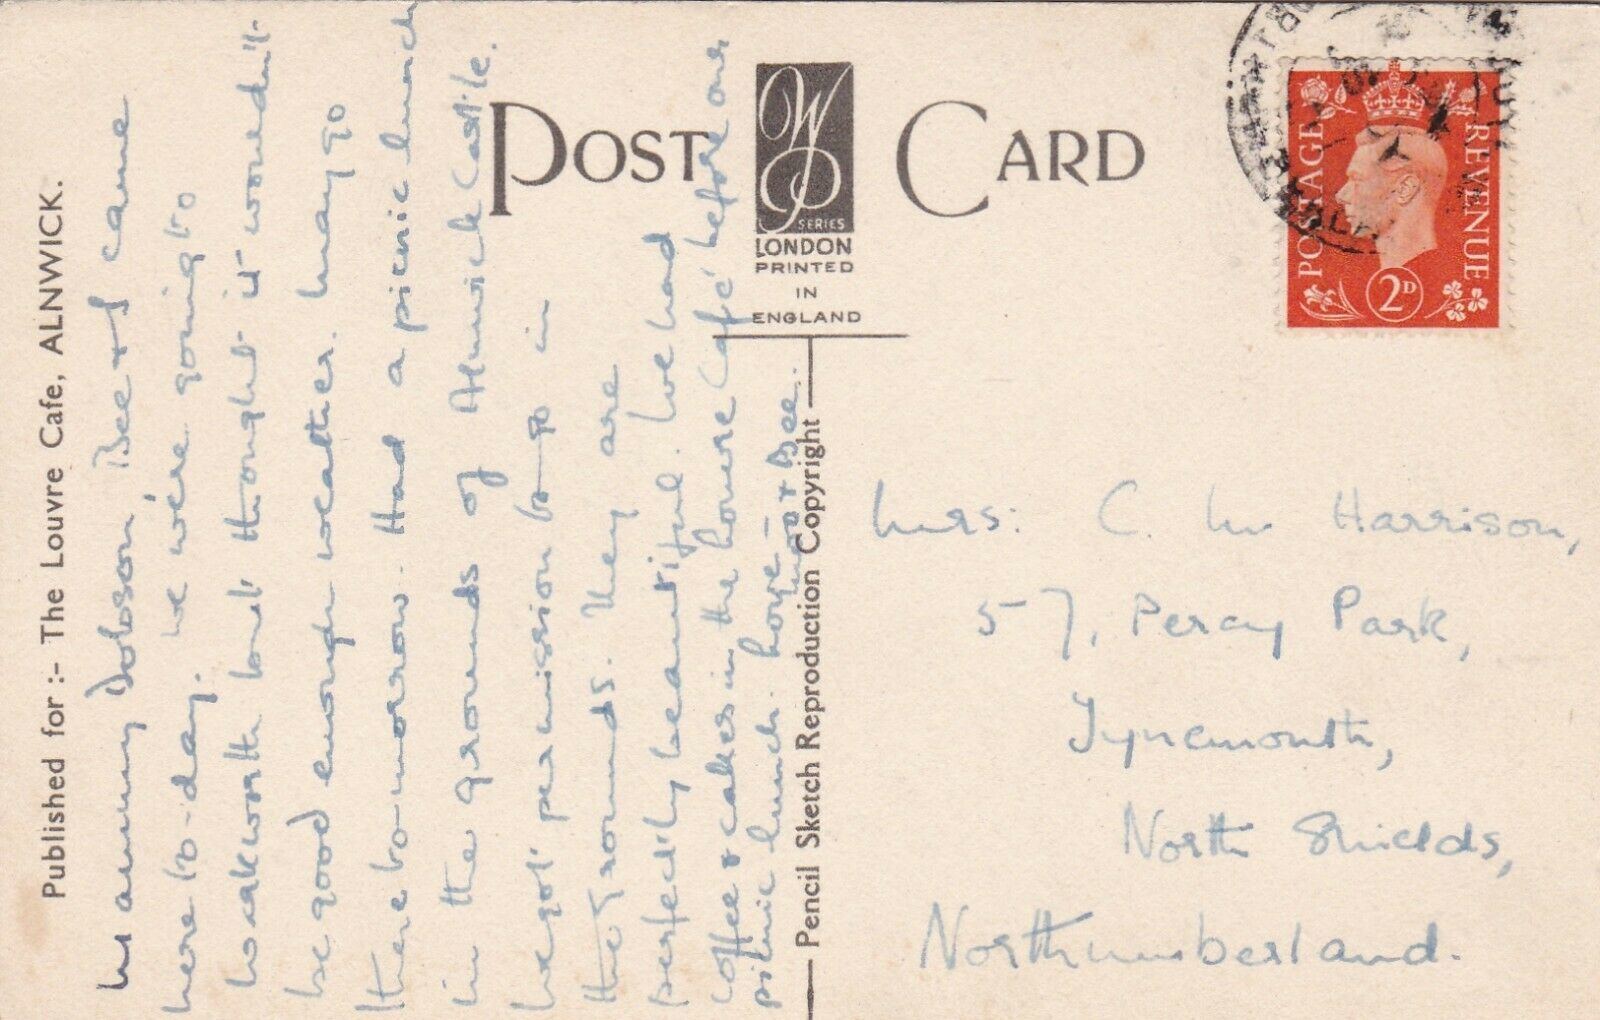 Published for :- The Louvre Cafe, ALNWICK.
Mammy Dobson, Bee & I came
here to-day. We were going to
Warkworth but thought it wouldn't
be good enough weather. May go
there to-morrow. Had a picnic lunch
in the grounds of Alnwick Castle.
We got permission to go in
the grounds. They are
perfectly beautiful. We had
coffee & cakes in the Louvre Café before our
picnic lunch. Love –
& Bee.
POST CARD
WP
SERIES
LONDON
PRINTED
IN
ENGLAND
Pencil Sketch Reproduction Copyright
POSTAGE REVENUE
2D
Mrs: C. W Harrison,
57, Percy Park,
Tynemouth,
North Shields,
Northumberland.